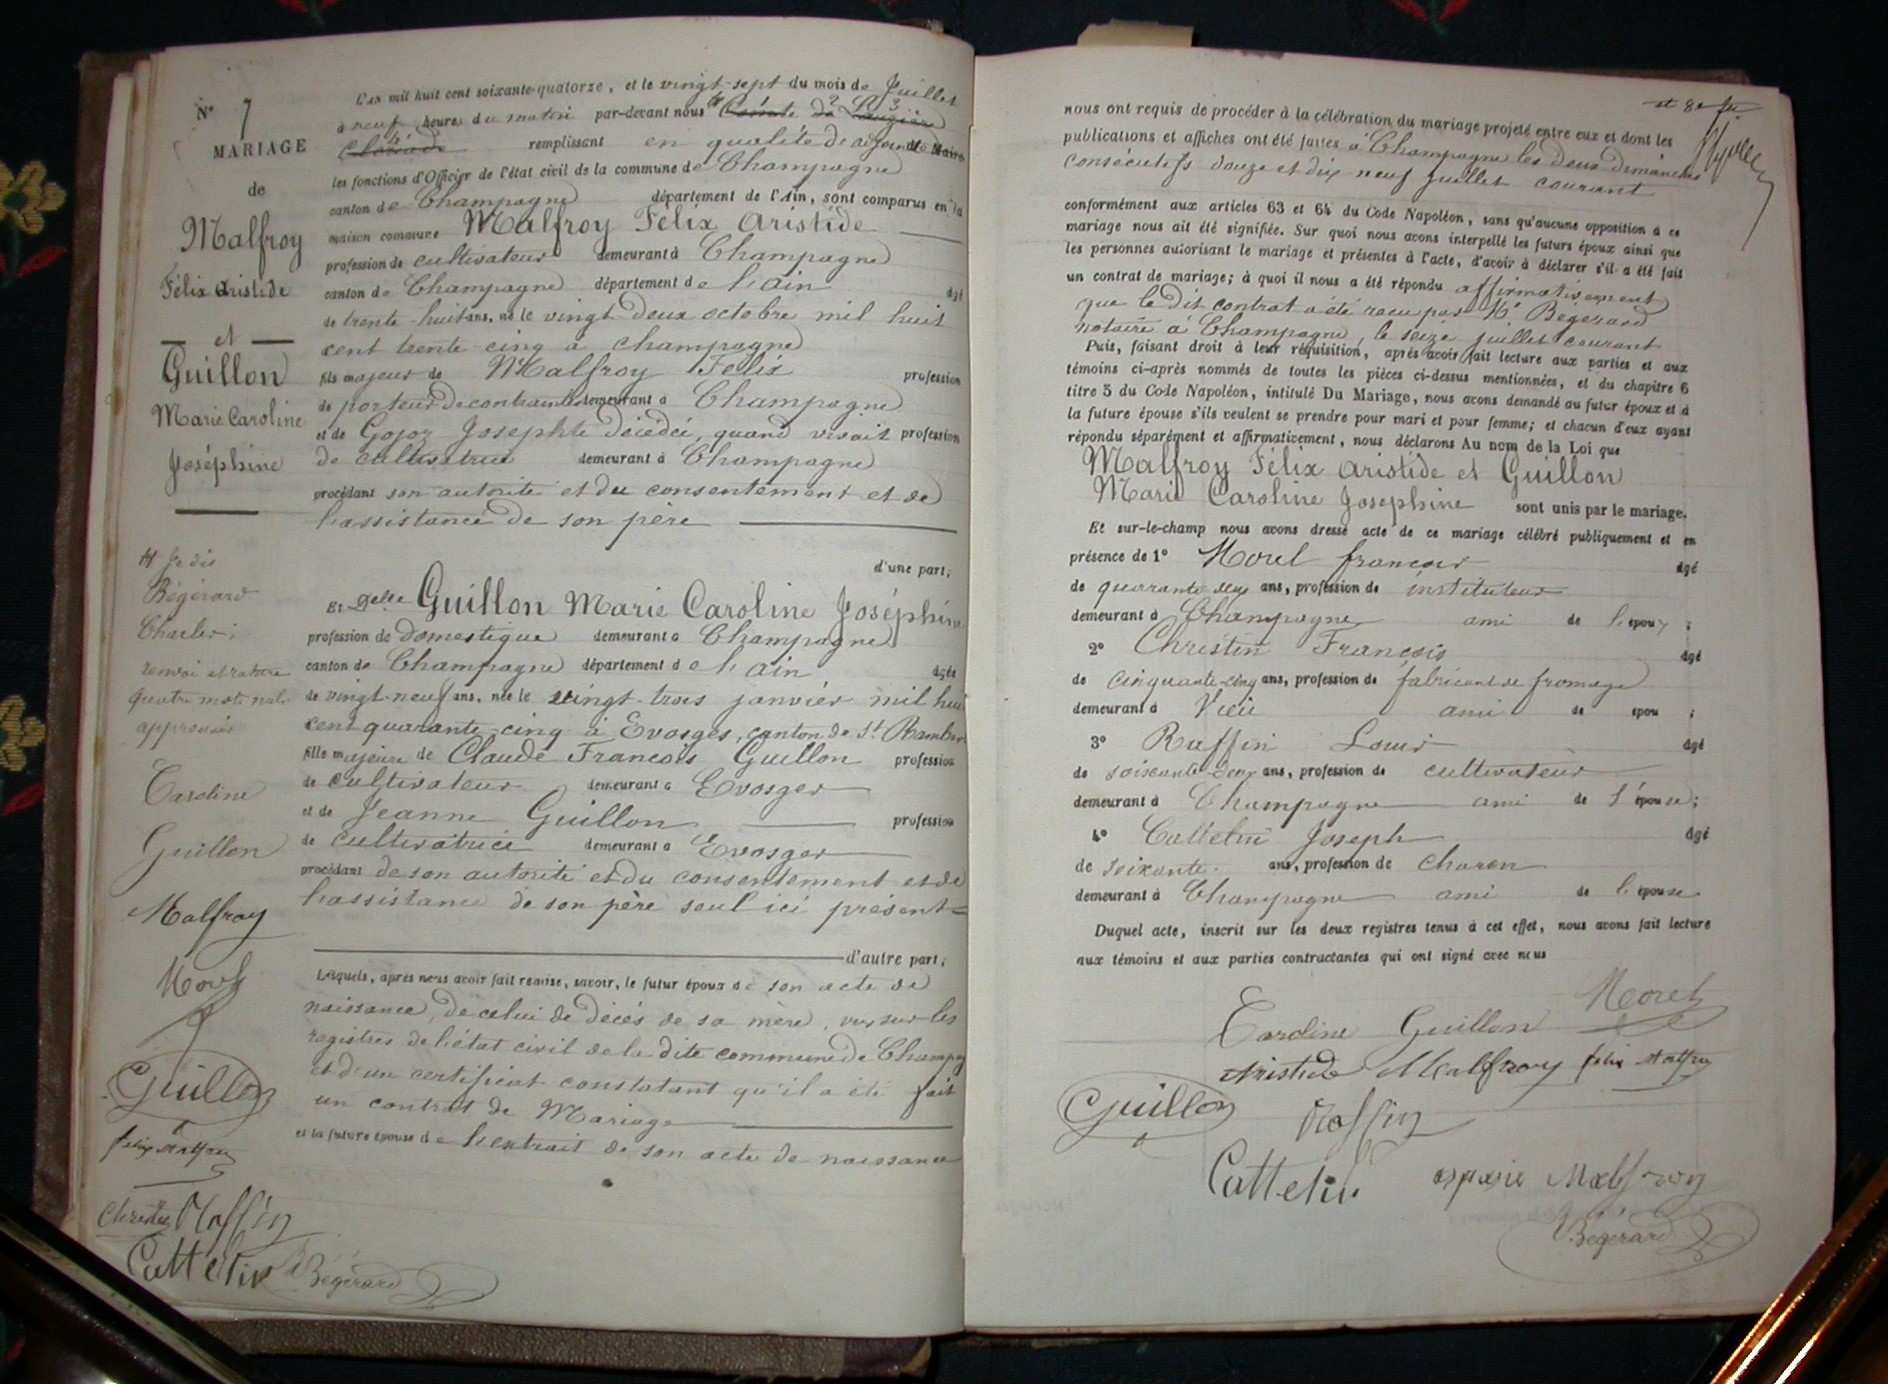 N° 7
MARIAGE
de
Malfroy
Félix Aristide
et
Guillon
Marie Caroline
Joséphine
L'an mil huit cent soixante-quatorze, et le vingt-sept du mois de Juillet
à neuf heures du matin par-devant nous
remplissant en qualité de adjoint Maire
les fonctions d'Officier de l'état civil de la commune de Champagne
canton de Champagne département de l'Ain, sont comparus en la
maison commune Malfroy Félix Aristide
profession de cultivateur demeurant à Champagne
canton de Champagne département de l'ain âgé
de trente-huit ans, né le vingt deux octobre mil huit
cent trente cinq à Champagne
fils majeur de Malfroy Félix profession
de porteur de contraintes demeurant à Champagne
et de Gojoz Josephte décédée, quand vivait profession
de cultivatrice demeurant à Champagne
procédant son autorité et du consentement et de
l'assistance de son père
d'une part;
Et Delle Guillon Marie Caroline Joséphine
profession de domestique demeurant à Champagne
canton de Champagne département de l'ain âgée
de vingt-neuf ans, née le vingt-trois janvier mil huit
cent quarante-cinq à Evosges, canton de St Rambert
fille majeure de Claude François Guillon profession
de cultivateur demeurant à Evosges
et de Jeanne Guillon profession
de cultivatrice demeurant à Evosges
procédant de son autorité et du consentement et de
l'assistance de son père seul ici présent
d'autre part;
Lesquels, après nous avoir fait remise, savoir, le futur époux de son acte de
naissance, de celui de décès de sa mère, vus sur les
registres de l'état civil de la dite commune de Champag
et d'un certificat constatant qu'il a été fait
un contrat de Mariage
et la future épouse de l'extrait de son acte de naissance
Je dis
Bégérard
Charles;
renvoi et rature
quatre mots nuls
approuvés
Caroline
Guillon
Malfroy
Morel
Guillon
felix Malfroy
Christin Raffin
Cattelin Bégérard
nous ont requis de procéder à la célébration du mariage projeté entre eux et dont les
publications et affiches ont été faites à Champagne les deux dimanches
consécutifs douze et dix neuf juillet courant
conformément aux articles 63 et 64 du Code Napoléon, sans qu'aucune opposition à ce
mariage nous ait été signifiée. Sur quoi nous avons interpellé les futurs époux ainsi que
les personnes autorisant le mariage et présentes à l'acte, d'avoir à déclarer s'il a été fait
un contrat de mariage; à quoi il nous a été répondu affirmativement
que le dit contrat a été reçu par Me Bégérard
notaire à Champagne, le seize juillet courant
Puis, faisant droit à leur réquisition, après avoir fait lecture aux parties et aux
témoins ci-après nommés de toutes les pièces ci-dessus mentionnées, et du chapitre 6
titre 5 du Code Napoléon, intitulé Du Mariage, nous avons demandé au futur époux et à
la future épouse s'ils veulent se prendre pour mari et pour femme; et chacun d'eux ayant
répondu séparément et affirmativement, nous déclarons Au nom de la Loi que
Malfroy Félix Aristide et Guillon
Marie Caroline Josephine sont unis par le mariage.
Et sur-le-champ nous avons dressé acte de ce mariage célébré publiquement et en
présence de 1° Morel françois âgé
de quarante deux ans, profession de instituteur
demeurant à Champagne ami de l'époux;
2° Christin François âgé
de cinquante-cinq ans, profession de fabricant de fromage
demeurant à Vieu ami de épou;
3° Ruffin Louis âgé
de soixante-deux ans, profession de cultivateur
demeurant à Champagne ami de l'épouse;
4° Cattelin Joseph âgé
de soixante ans, profession de charon
demeurant à Champagne ami de l'épouse
Duquel acte, inscrit sur les deux registres tenus à cet effet, nous avons fait lecture
aux témoins et aux parties contractantes qui ont signé avec nous
Caroline Guillon Morel
Aristide Malfroy felix Malfroy
Guillon Raffin
Cattelin aspasie Malfroy
Bégérard